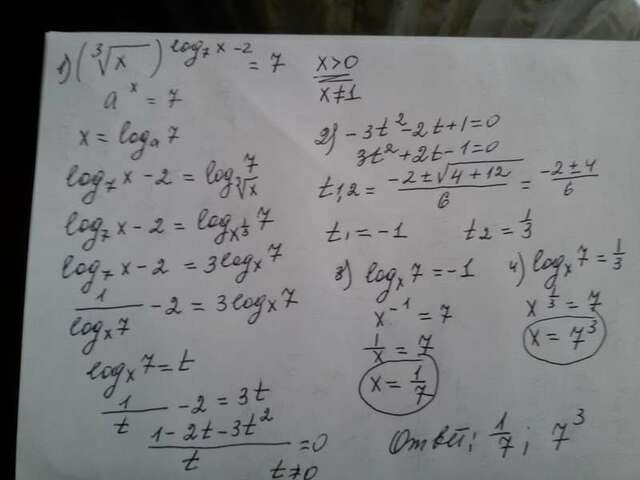 1) (∛x)^(log₇x−2) = 7
a^x = 7
x = logₐ7
log₇x − 2 = log_∛x 7
log₇x − 2 = log_x^(1/3) 7
log₇x − 2 = 3logₓ7
1/logₓ7 − 2 = 3logₓ7
logₓ7 = t
1/t − 2 = 3t
(1−2t−3t²)/t = 0
t≠0
x>0
x≠1
2) −3t²−2t+1=0
3t²+2t−1=0
t₁,₂ = (−2±√(4+12))/6 = (−2±4)/6
t₁=−1 t₂=1/3
3) logₓ7=−1
x⁻¹ = 7
1/x = 7
x = 1/7
4) logₓ7=1/3
x^(1/3) = 7
x = 7³
Ответ: 1/7; 7³